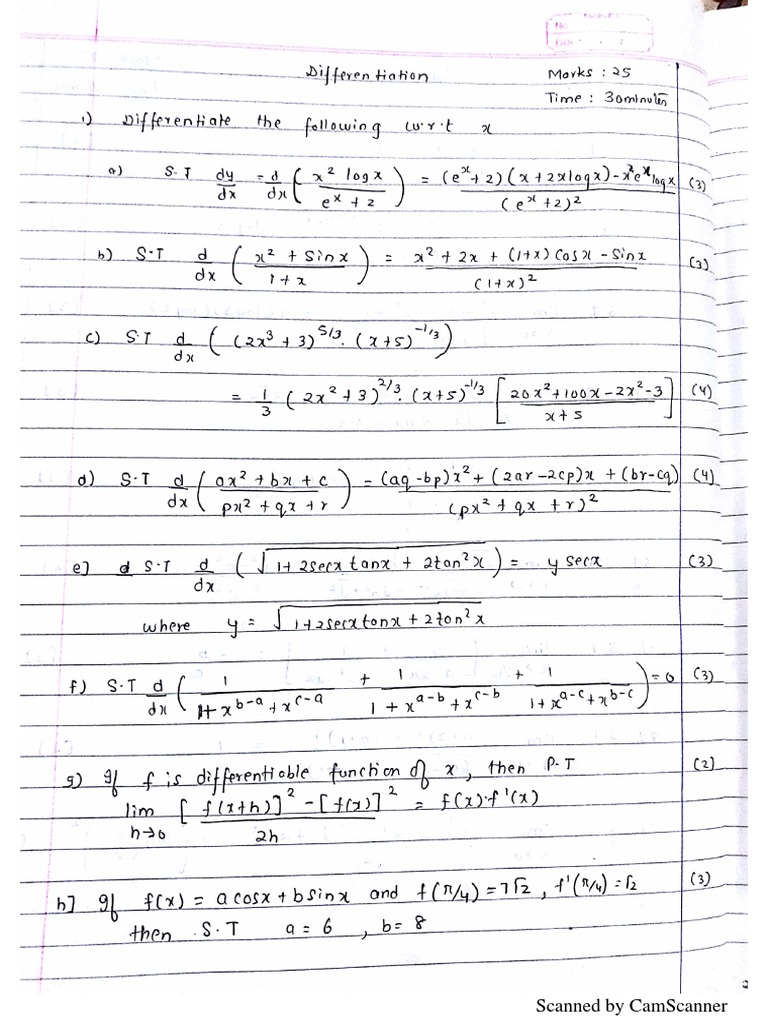 No.
Date
Differentiation Marks : 25
Time : 30minutes
1) Differentiate the following w.r.t x
a) S.T dy/dx = d/dx ( x² logx / eˣ + 2 ) = (eˣ+2)(x + 2xlogx) - x²eˣlogx / (eˣ+2)² (3)
b) S.T d/dx ( x² + Sinx / 1 + x ) = x² + 2x + (1+x) Cosx - Sinx / (1+x)² (3)
c) S.T d/dx ( (2x³ + 3)^5/3 . (x+5)^-1/3 )
= 1/3 (2x² + 3)^2/3 . (x+5)^-1/3 [ 20x² + 100x - 2x² - 3 / x + 5 ] (4)
d) S.T d/dx ( ax² + bx + c / px² + qx + r ) = (aq - bp)x² + (2ar - 2cp)x + (br - cq) / (px² + qx + r)² (4)
e] d S.T d/dx ( √1 + 2secx tanx + 2tan²x ) = y secx (3)
where y = √1 + 2secx tanx + 2tan²x
f) S.T d/dx ( 1 / 1 + x^b-a + x^c-a + 1 / 1 + x^a-b + x^c-b + 1 / 1 + x^a-c + x^b-c ) = 0 (3)
g) If f is differentiable function of x, then P.T (2)
lim h→0 [f(x+h)]² - [f(x)]² / 2h = f(x).f'(x)
h] If f(x) = a cosx + b sinx and f(π/4) = 7√2, f'(π/4) = √2 (3)
then S.T a = 6, b = 8
Scanned by CamScanner